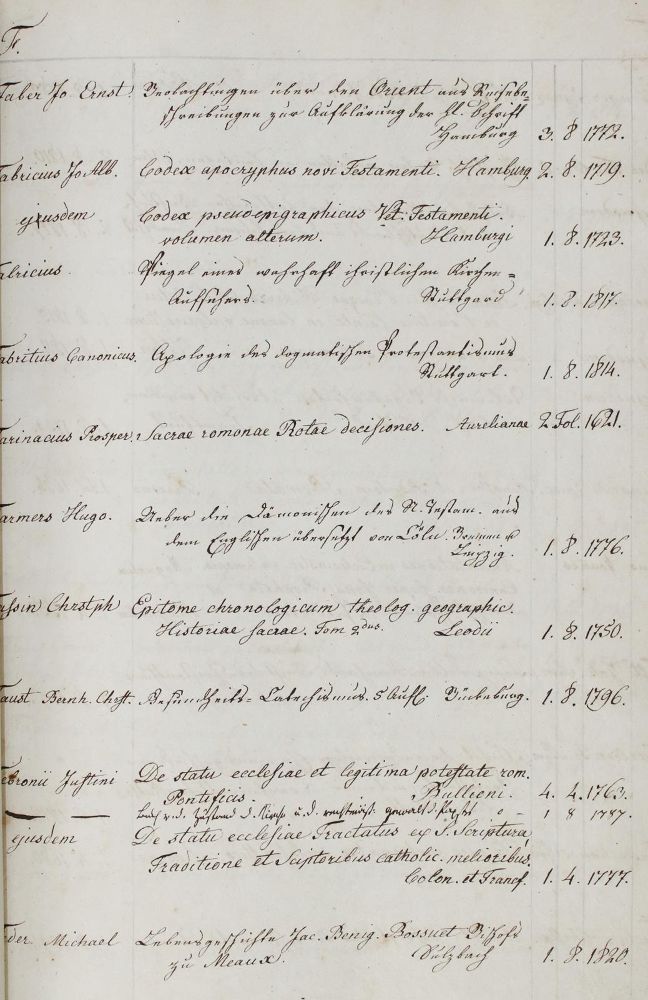 F.
Faber Jo Ernst. Beobachtungen über den Orient aus Reisebe=
schreibungen zur Aufklärung der hl. Schrift
Hamburg 3. 8 1772.
Fabricius Jo Alb. Codex apocryphus novi Testamenti. Hamburg. 2. 8. 1719.
ejusdem Codex pseudepigraphicus Vet. Testamenti.
volumen alterum. Hamburgi 1. 8. 1723.
Fabricius Spiegel eines wahrhaft christlichen Kirchen=
Aufsehers. Stuttgard 1. 8. 1817.
Fabritius Canonicus. Apologie des dogmatischen Protestantismus
Stuttgart. 1. 8. 1814.
Farinacius Prosper. Sacrae romonae Rotae decisiones. Aurelianae 2 Fol. 1621.
Farmers Hugo. Ueber die Dämonischen des N. Testam. aus
dem Englischen übersetzt von Cöln. Bremen u
Leipzig. 1. 8. 1776.
Fassin Chrstph Epitome chronologicum theolog. geographic.
Historiae sacrae. Tom 2dus. Leodii 1. 8. 1750.
Faust Bernh. Chrst. Gesundheits=Catechismus. 5 Aufl. Bückeburg. 1. 8. 1796.
Febronii Justini De statu ecclesiae et legitima potestate rom.
Pontificis. Bullioni. 4. 4. 1763.
Buch v. d. Zustand d. Kirche u. d. rechtmäß. Gewalt d. Papstes 1 8
ejusdem De statu ecclesiae Tractatus ex S. Scriptura,
Traditione et Scriptoribus catholic. melioribus.
Colon. et Francf. 1. 4. 1777.
Feder Michael Lebensgeschichte Jac. Benig. Bossuet Bischofs
zu Meaux. Sulzbach 1. 8. 1820.